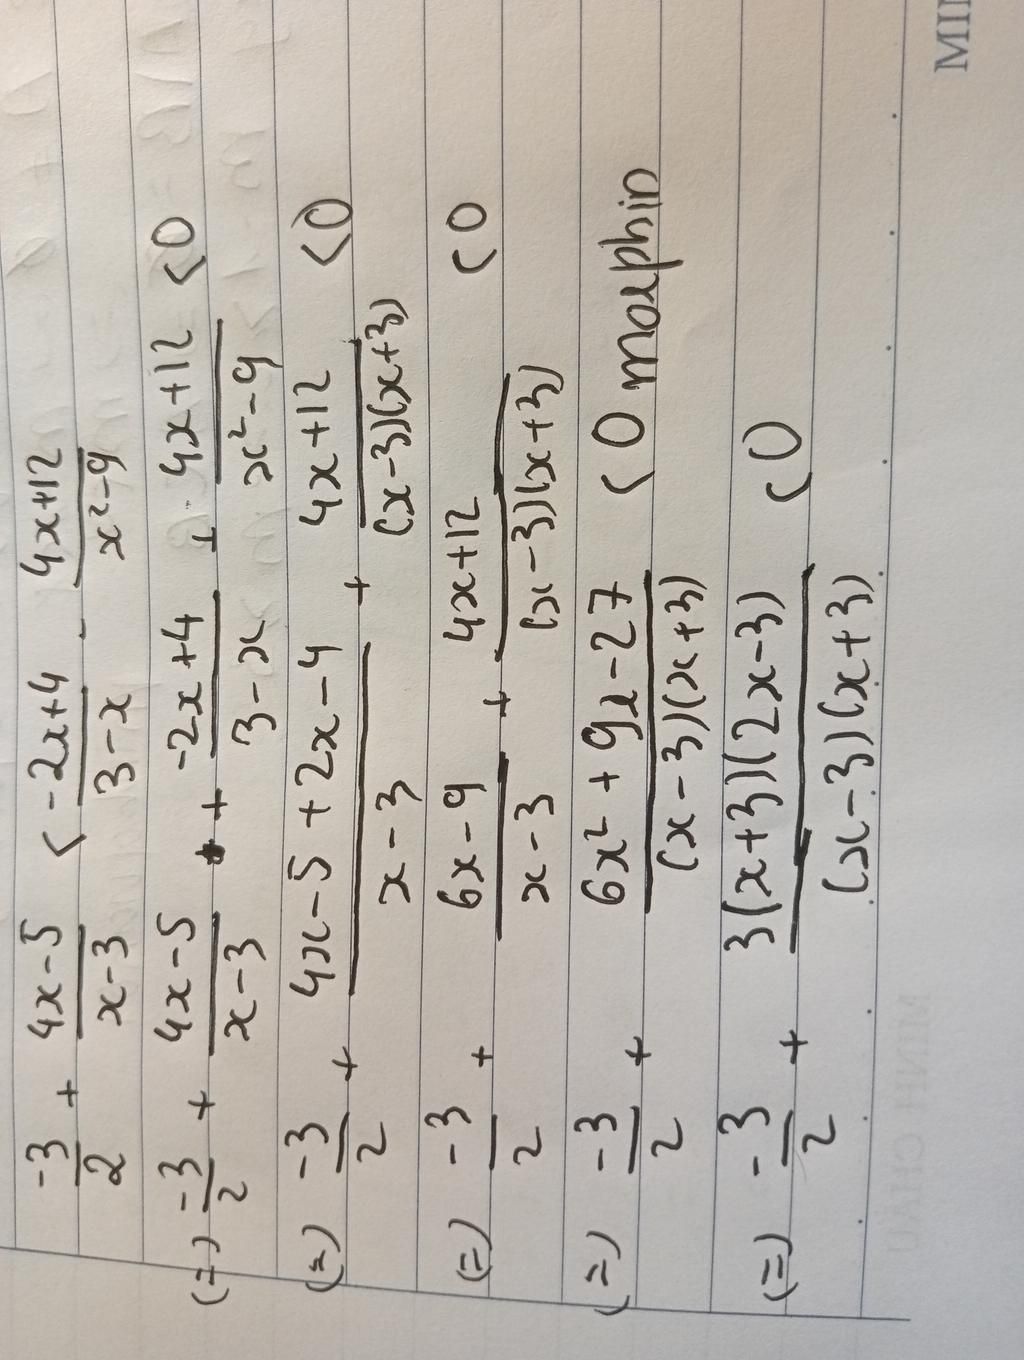 -3/2 + 4x-5/x-3 < -2x+4/3-x - 4x+12/x²-9
(=) -3/2 + 4x-5/x-3 + -2x+4/3-x + 4x+12/x²-9 <0
(=) -3/2 + 4x-5+2x-4/x-3 + 4x+12/(x-3)(x+3) <0
(=) -3/2 + 6x-9/x-3 + 4x+12/(x-3)(x+3) <0
(=) -3/2 + 6x²+9x-27/(x-3)(x+3) <0 morphin
(=) -3/2 + 3(x+3)(2x-3)/(x-3)(x+3) <0
MINH CHAU